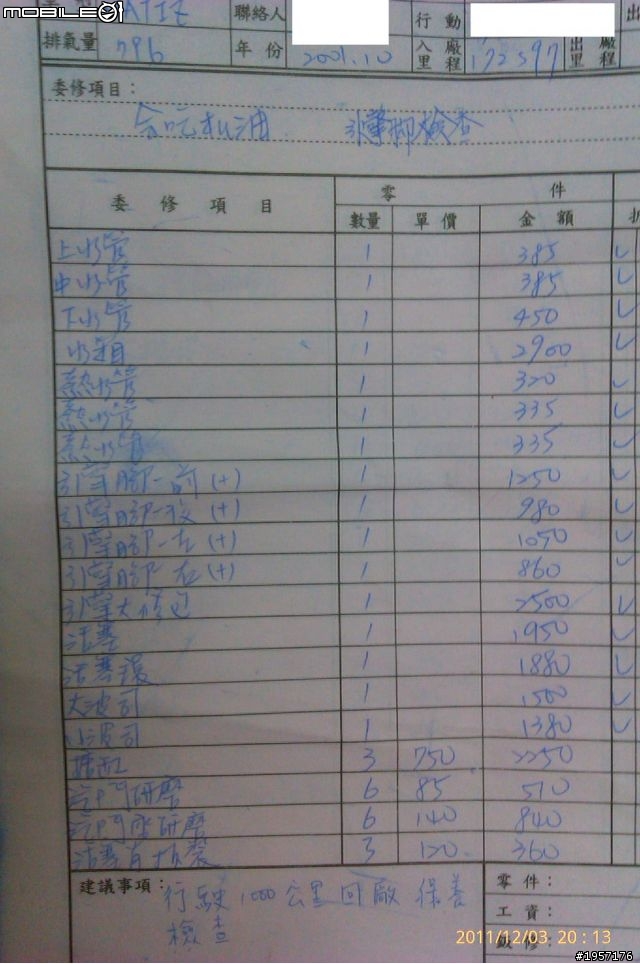 MOBILE01
ATIZ 聯絡人 行動 出
排氣量 796 年份 2001.10 入廠里程 172597 出廠里程
委修項目：
會吃机油 引擎腳檢查
委修項目 零件
數量 單價 金額 折
上水管 1 385 ✓
中水管 1 385 ✓
下水管 1 450 ✓
水箱 1 2900 ✓
熱水管 1 320 ✓
熱水管 1 335 ✓
熱水管 1 335 ✓
引擎腳-前(+) 1 1250 ✓
引擎腳-後(+) 1 980 ✓
引擎腳-左(+) 1 1050 ✓
引擎腳-右(+) 1 860 ✓
引擎大修包 1 2500 ✓
活塞 1 1950 ✓
活塞環 1 1880 ✓
大波司 1 1500 ✓
小波司 1 1380 ✓
搪缸 3 750 2250
汽門研磨 6 85 510
汽門座研磨 6 140 840
活塞肖拆裝 3 120 360
建議事項：行駛1000公里回廠保養
檢查
零件：
工資：
廠修：
2011/12/03 20:13
#1957176